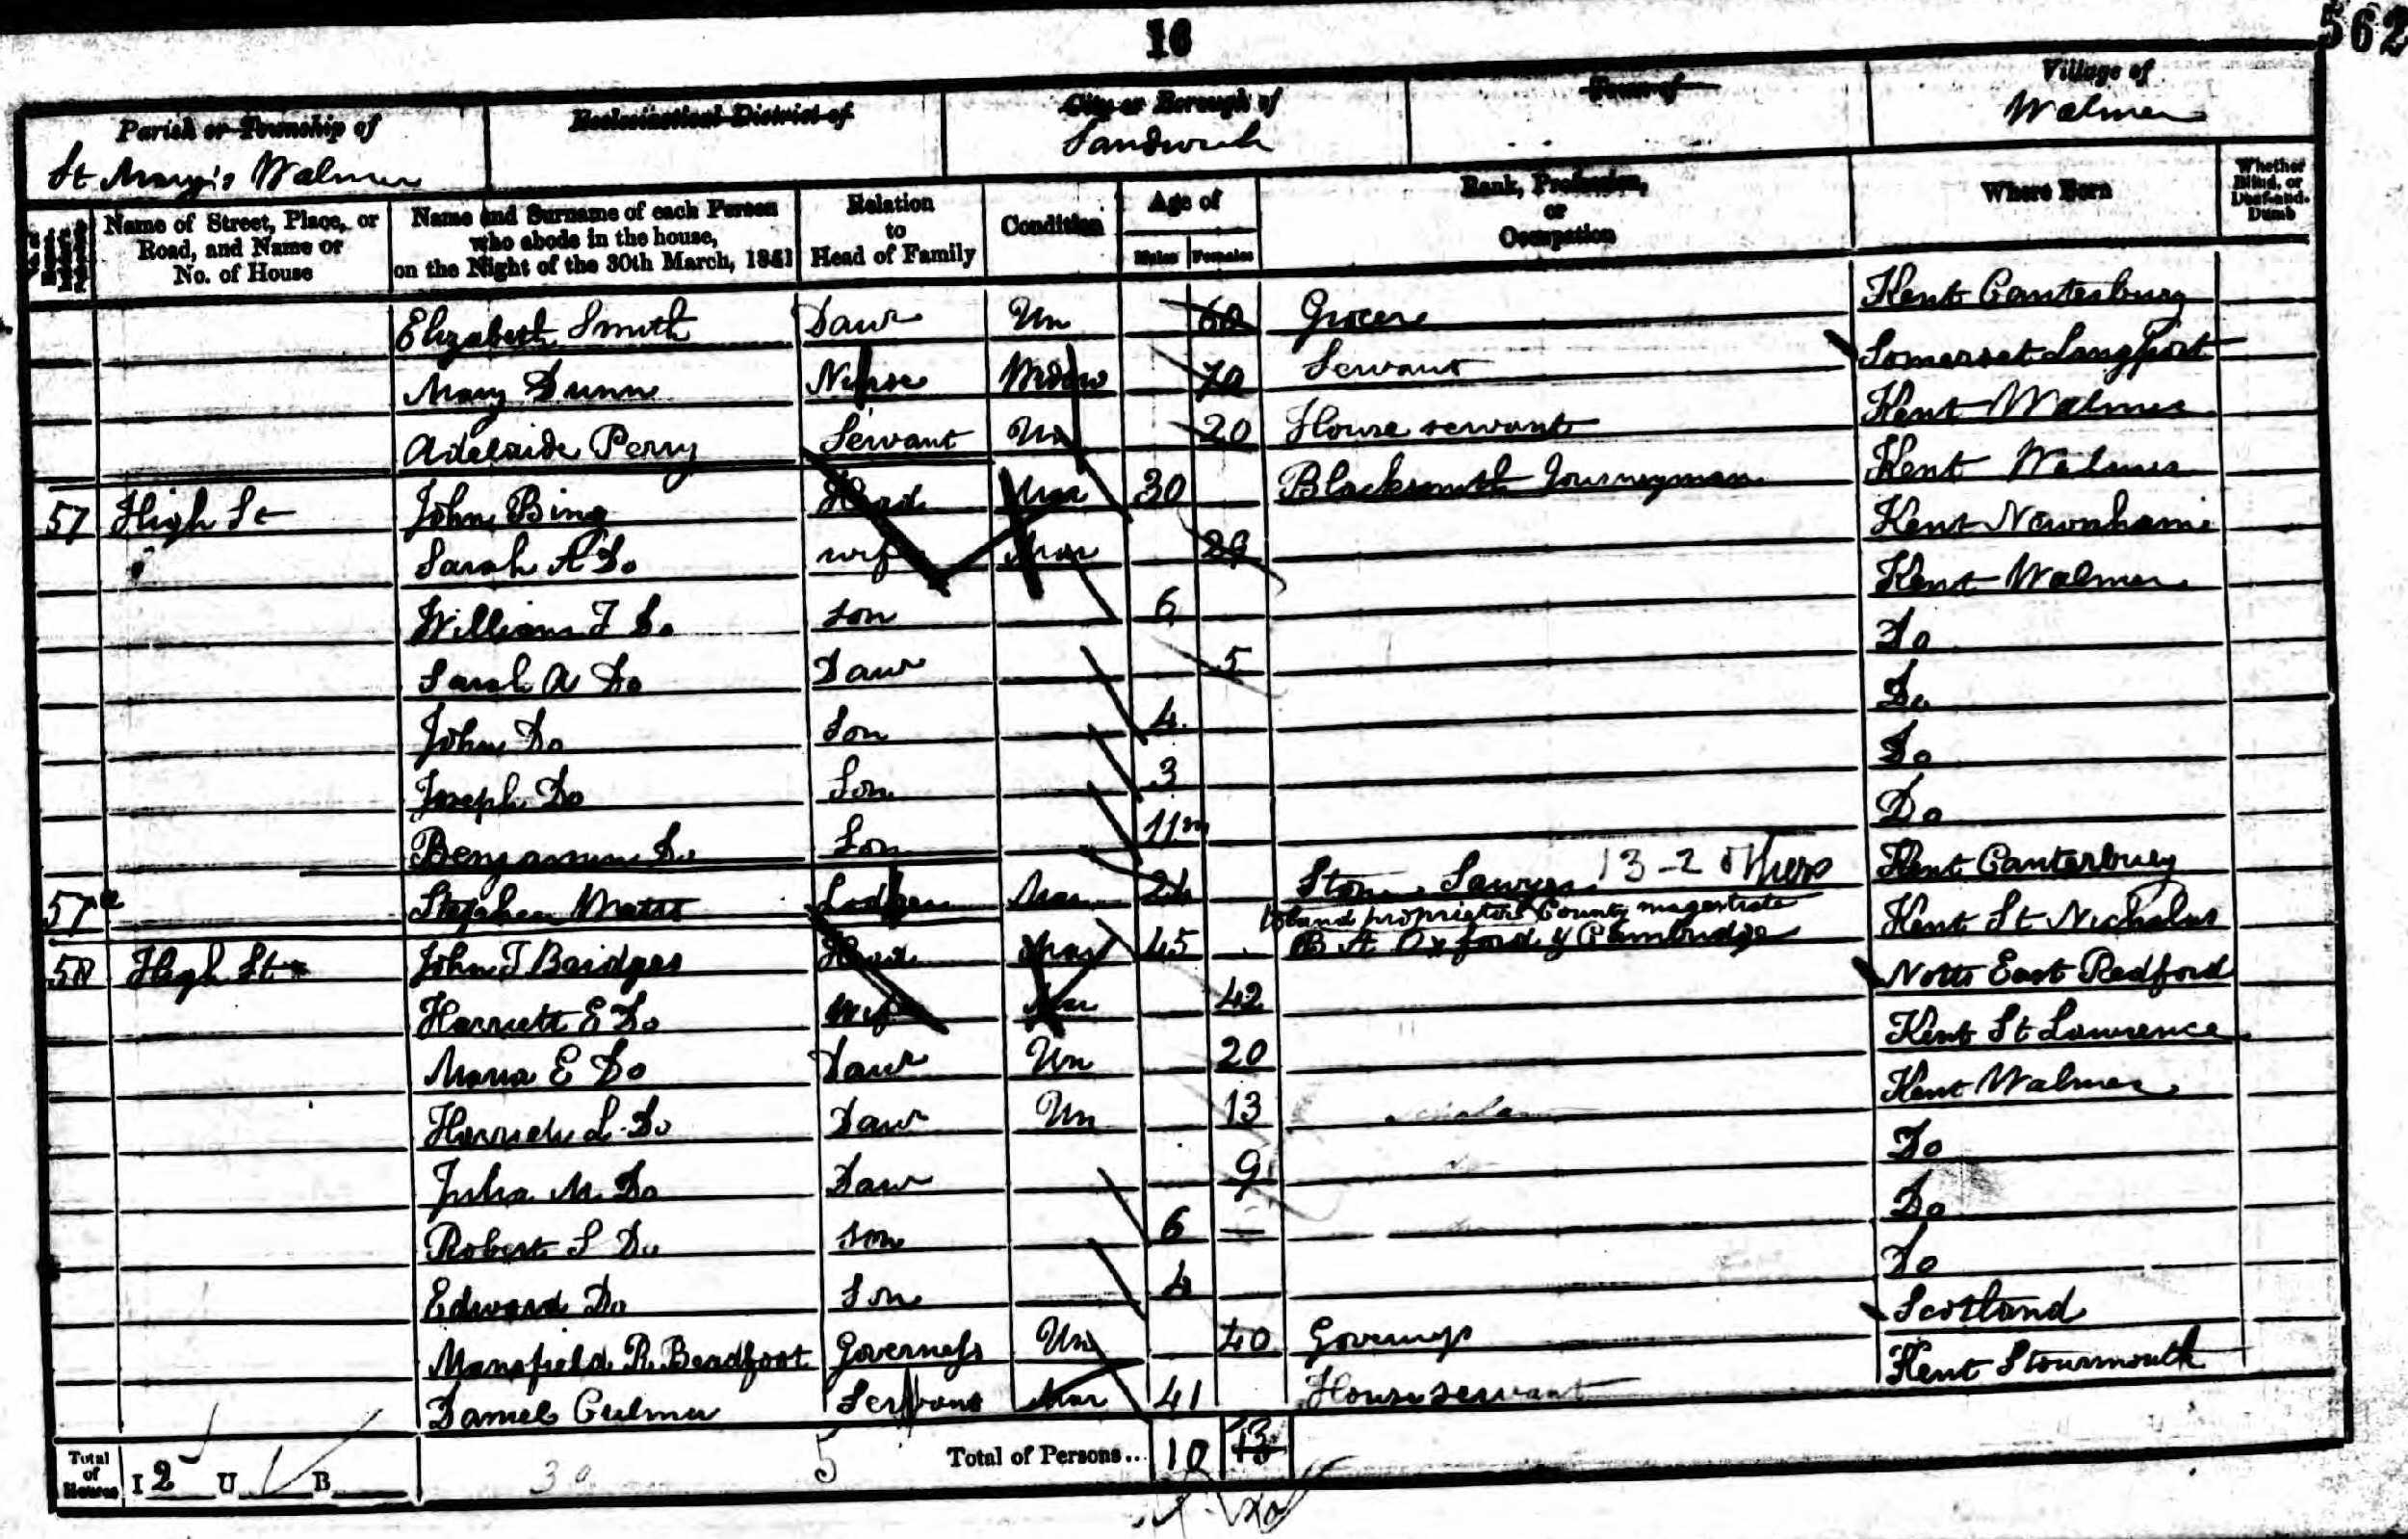 16
562
Parish or Township of
Ecclesiastical District of
City or Borough of
Town of
Village of
St Mary's Walmer
Sandwich
Walmer
Name of Street, Place, or Road, and Name or No. of House
Name and Surname of each Person who abode in the house, on the Night of the 30th March, 1851
Relation to Head of Family
Condition
Age of
Males Females
Rank, Profession, or Occupation
Where Born
Whether Blind, or Deaf-and-Dumb
Elizabeth Smith Daur Un 60 Grocer Kent Canterbury
Mary Dunn Nurse Widow 70 Servant Somerset Langport
Adelaide Perry Servant Un 20 House servant Kent Walmer
57 High St John Bing Head Mar 30 Blacksmith Journeyman Kent Walmer
Sarah A Do wife Mar 29 Kent Newnham
William F Do son 6 Kent Walmer
Sarah A Do Daur 5 Do
John Do Son 4 Do
Joseph Do Son 3 Do
Benjamin Do Son 11m Do
57a Stephen Lodger Mar 24 Stone Sawyer 13-2 others Kent Canterbury
58 High St John T Bridges Head Mar 45 Land proprietor County magistrate B A Oxford & Cambridge Kent St Nicholas
Harriett E Do Wife Mar 42 Notts East Redford
Maria E Do Daur Un 20 Kent St Lawrence
Harriett L Do Daur Un 13 Kent Walmer
Julia M Do Daur 9 Do
Robert S Do son 6 Do
Edward Do Son 4 Do
Mansfield R. Beadfoot Governess Un 40 Governess Scotland
Daniel Culmer Servant Mar 41 House servant Kent Stourmouth
Total of Houses I 2 U B 5 Total of Persons.. 10 13